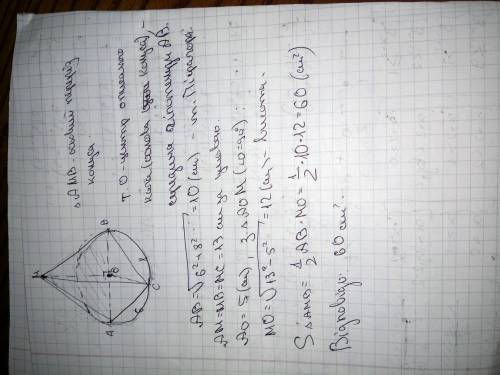 △ AMB - осьовий переріз
конуса
т. O - центр описаного
кола (основа конуса) -
середина гіпотенузи AB.
AB = √6² + 8² = 10 (см) - т. Піфагора.
AM = MB = MC = 13 см за умовою.
AO = 5 (см), З △ AOM (∠O = 90°):
MO = √13² - 5² = 12 (см) - висота.
S△AMB = 1/2 AB · MO = 1/2 · 10 · 12 = 60 (см²)
Відповідь: 60 см².
M
A
B
O
C
6
8